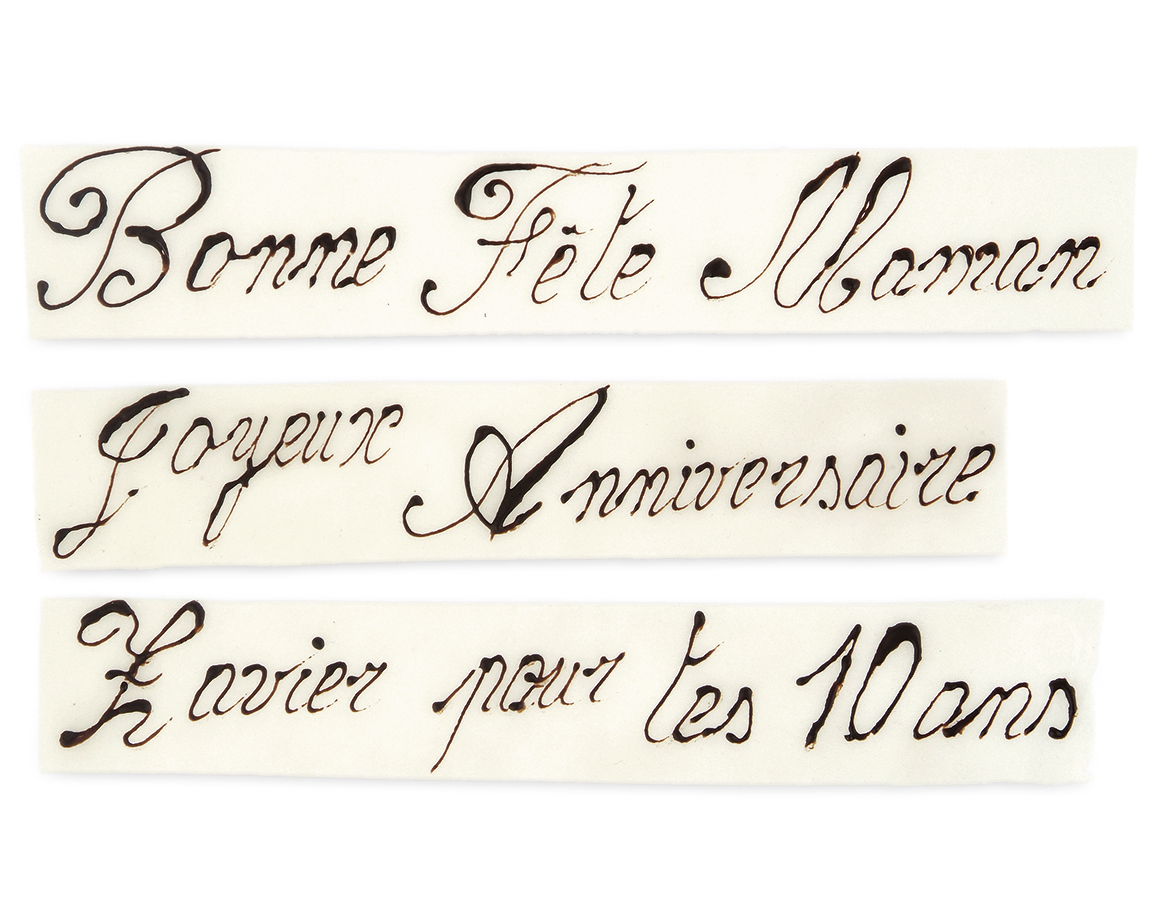 Bonne Fête Maman
Joyeux Anniversaire
Xavier pour tes 10 ans